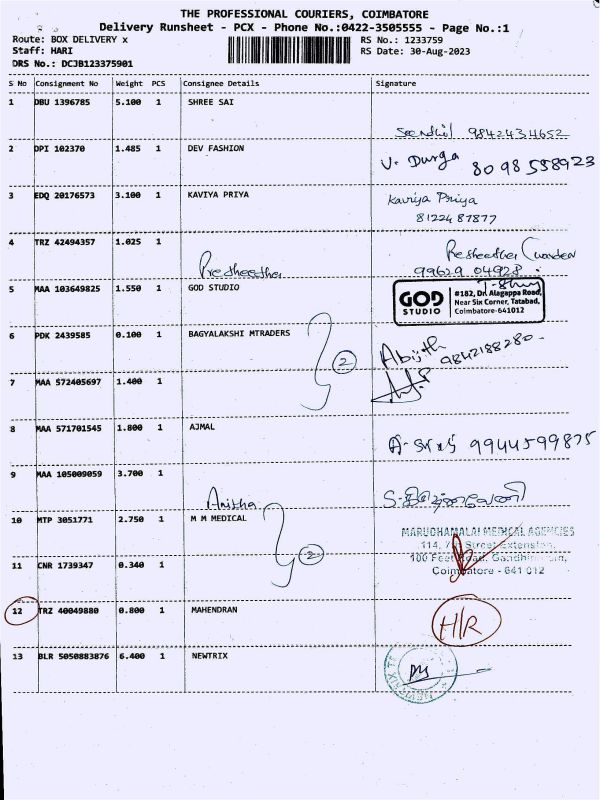 THE PROFESSIONAL COURIERS, COIMBATORE
Delivery Runsheet - PCX - Phone No.:0422-3505555 - Page No.:1
Route: BOX DELIVERY x RS No.: 1233759
Staff: HARI RS Date: 30-Aug-2023
DRS No.: DCJB123375901
S No Consignment No Weight PCS Consignee Details Signature
1 DBU 1396785 5.100 1 SHREE SAI
9842434652
2 DPI 102370 1.485 1 DEV FASHION V. Durga 8098558923
3 EDQ 20176573 3.100 1 KAVIYA PRIYA Kaviya Priya
8122487877
4 TRZ 42494357 1.025 1
99629 04928
5 MAA 103649825 1.550 1 GOD STUDIO
GOD STUDIO
#182, Dr. Alagappa Road,
Near Six Corner, Tatabad,
Coimbatore-641012
6 PDK 2439585 0.100 1 BAGYALAKSHI MTRADERS Abijith 9842188280
2
7 MAA 572405697 1.400 1
8 MAA 571701545 1.800 1 AJMAL 9944599875
9 MAA 105009059 3.700 1
Anitha
10 MTP 3051771 2.750 1 M M MEDICAL
MARUDHAMALAI MEDICAL AGENCIES
114, Street Extension,
100 Feet Road,
Coimbatore - 641 012
2
11 CNR 1739347 0.340 1
12 TRZ 40049880 0.800 1 MAHENDRAN H/R
13 BLR 5050883876 6.400 1 NEWTRIX